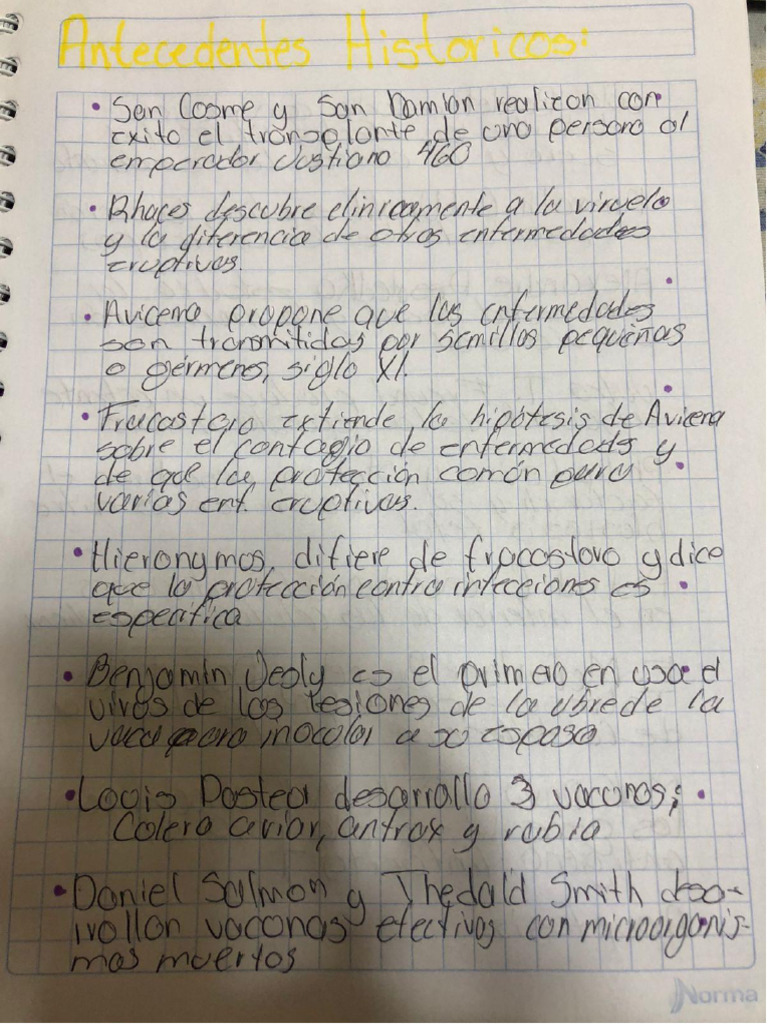 Antecedentes Historicos:
• San Cosme y San Damian realizan con
exito el transplante de una persona al
emperador Justiano 460
• Rhaces descubre clinicamente a la viruela
y la diferencia de otras enfermedades
eruptivas.
• Avicena propone que las enfermedades
son transmitidas por semillas pequeñas
o gérmenes, siglo XI.
• Fracastoro extiende la hipótesis de Avicena
sobre el contagio de enfermedads y
de que la protección común para
varias enf. eruptivas.
• Hieronymos, difiere de fracostoro y dice
que la protección contra infecciones es
especifica
• Benjamin Jesly es el primero en usa el
virus de las lesiones de la ubre de la
vaca para inocular a su esposa
• Louis Pasteur desarrollo 3 vacunas;
Colera aviar, antrax y rabia
• Daniel Salmon y Thedald Smith desa-
rrollan vacunas efectivas con microorganis-
mos muertos
Norma